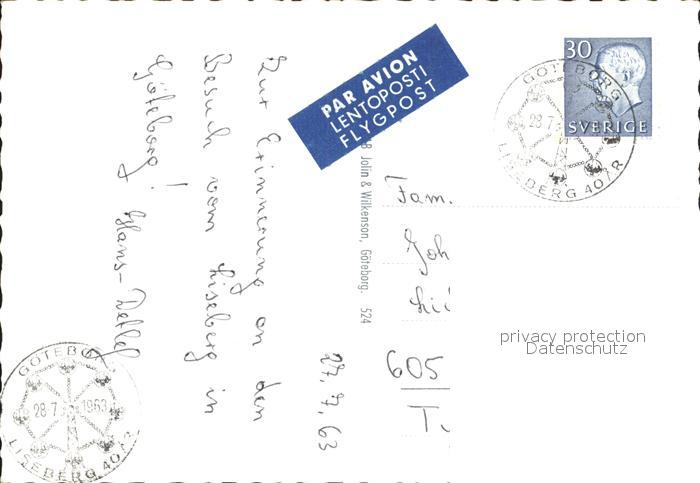 27.7.63
Zur Erinnerung an den
Besuch vom Liseberg in
Göteborg!
Hans-Detlef
PAR AVION
LENTOPOSTI
FLYGPOST
Jolin & Wilkenson, Göteborg. 524
30
SVERIGE
GÖTEBORG
28.7
LISEBERG 40 ÅR
Fam.
Joh
605
T.
privacy protection
Datenschutz
GÖTEBORG
28.7 1963
LISEBERG 40 ÅR